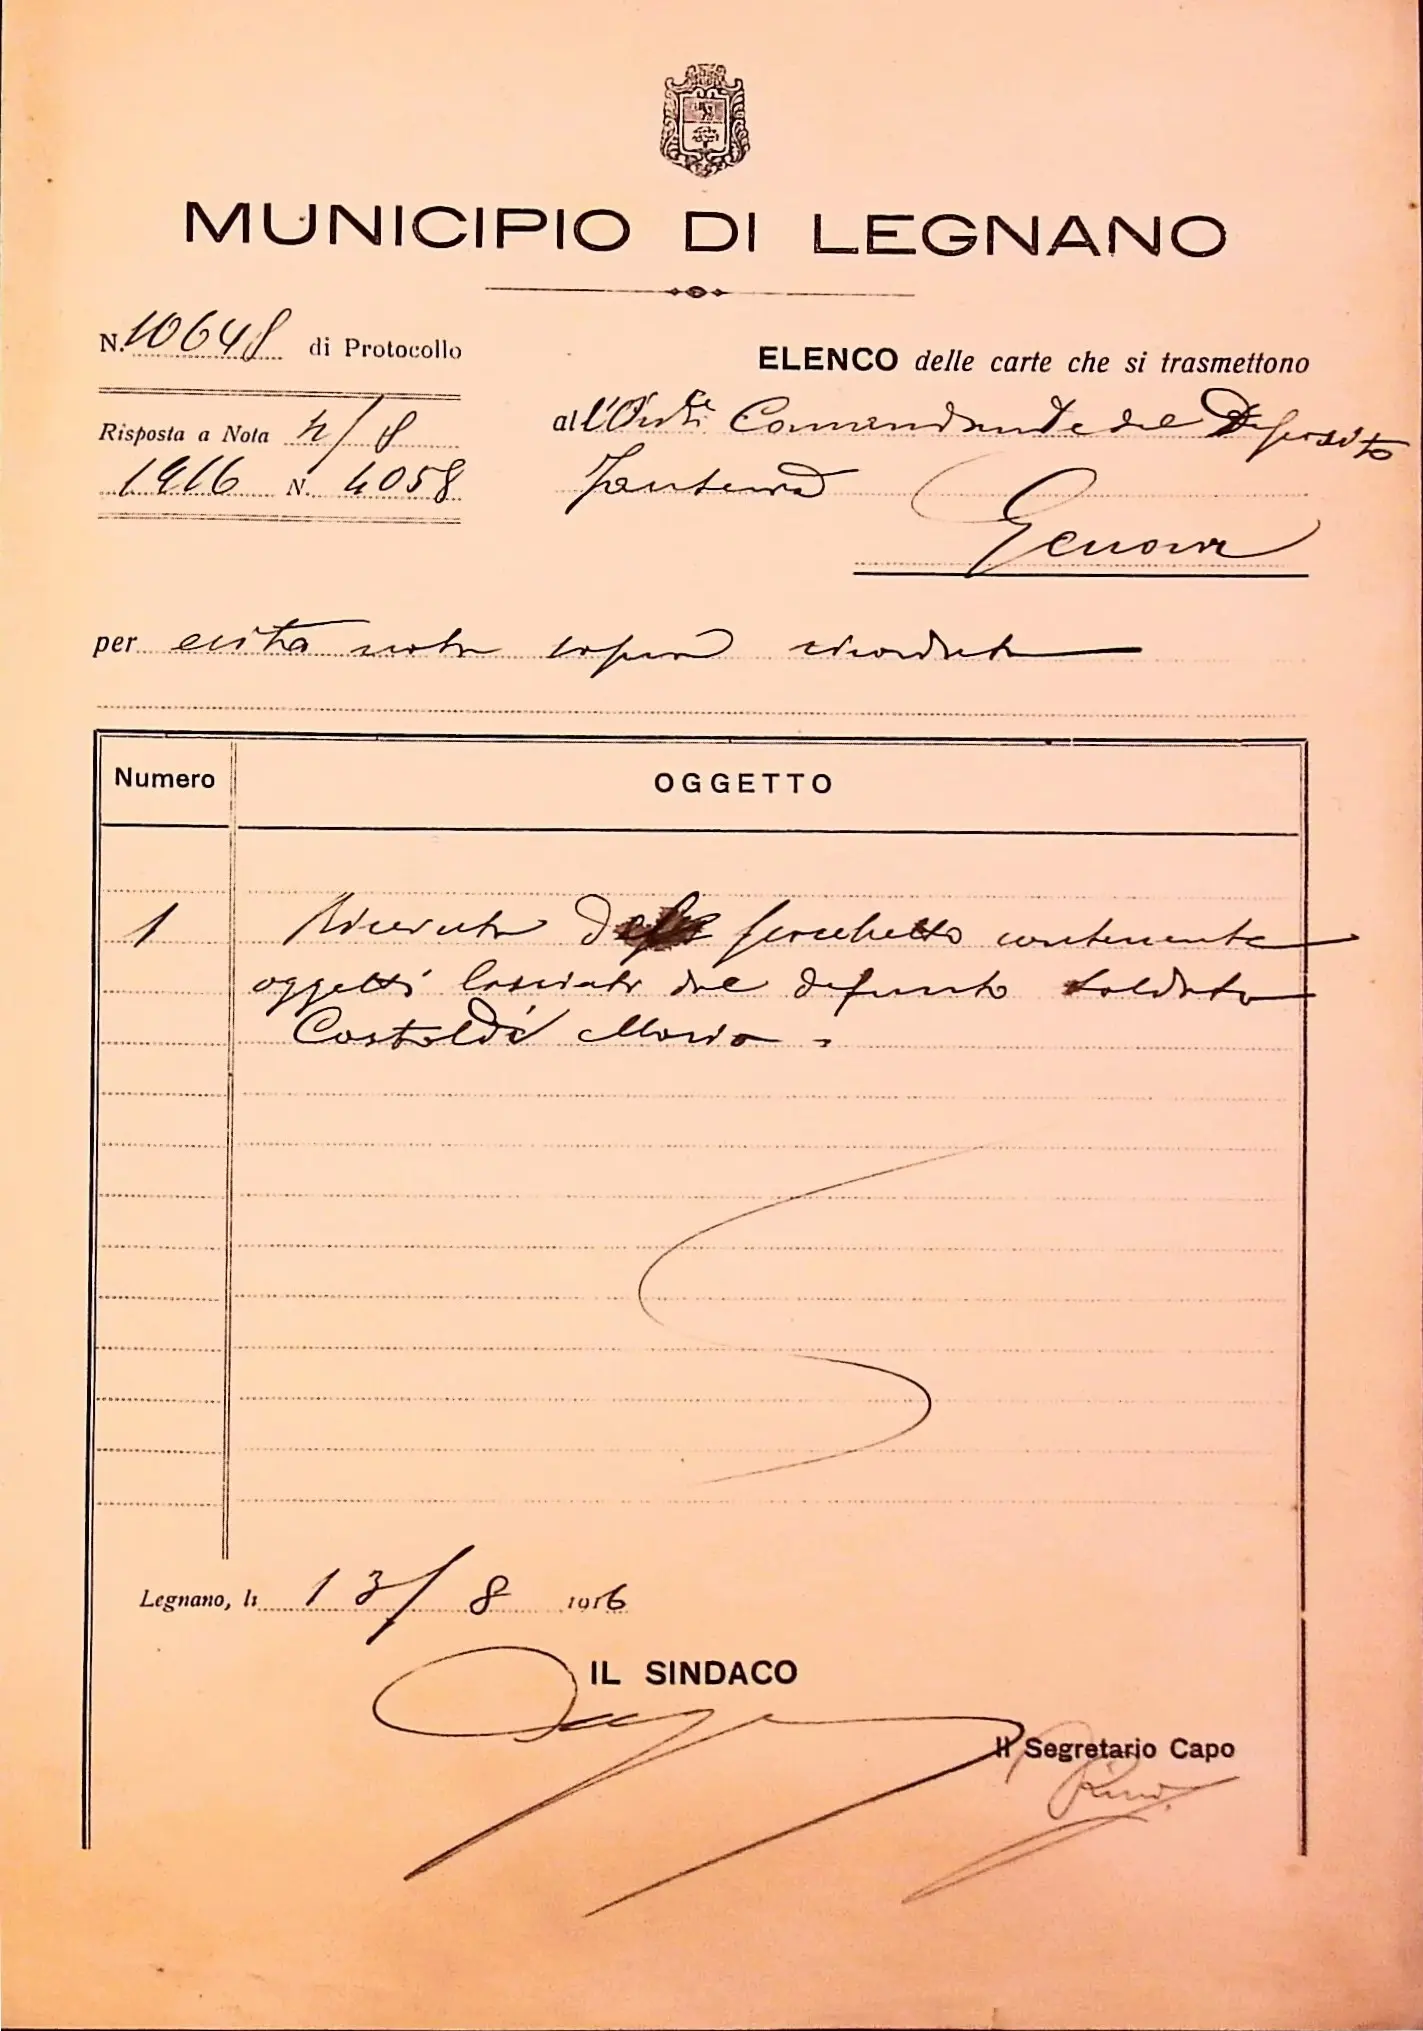 MUNICIPIO DI LEGNANO
N. 10648 di Protocollo
ELENCO delle carte che si trasmettono
Risposta a Nota 4/8
all' Comandante del Deposito
1916 N. 4058
Fanteria
Genova
per nota sopra ricordata
Numero
OGGETTO
1 Ricevuta del sacchetto contenente
oggetti lasciato dal defunto soldato
Castoldi Mario.
Legnano, li 13/8 1916
IL SINDACO
Il Segretario Capo